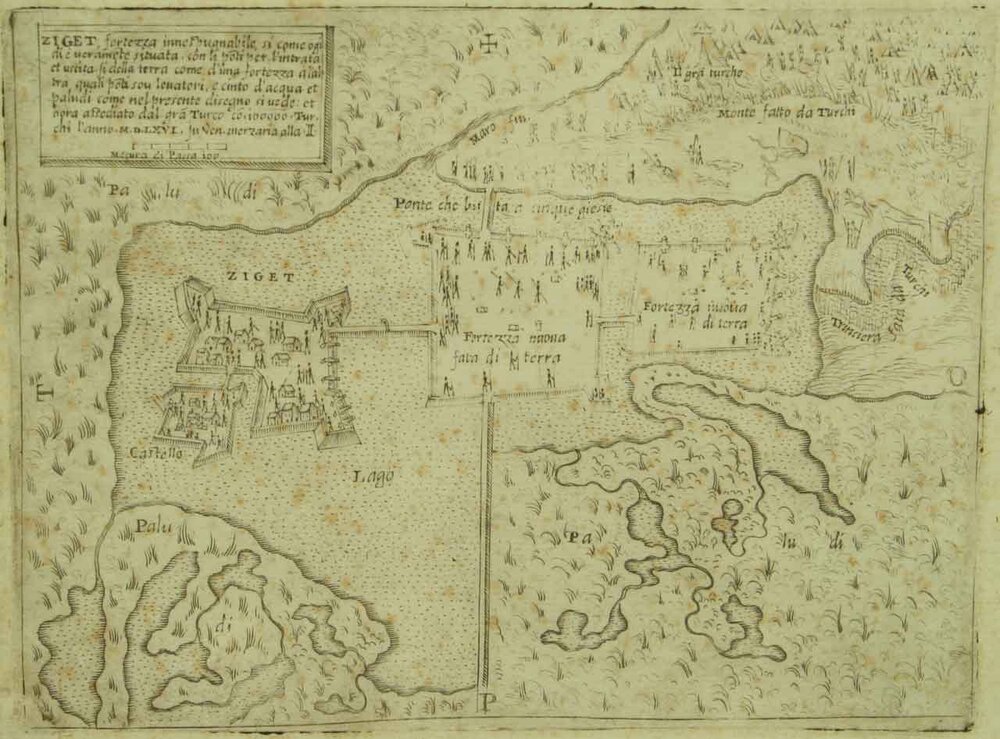 ZIGET, fortezza innespugnabile, si come ogi
di è veramēte situata, con li pōti per l'intrata
et uscita si della terra come d'una fortezza a l'al
tra, quali pōti sou levatori, e cinto d'acqua et
paludi come nel presente disegno si vede, et
hora assediato dal grā Turco cō 100000 Tur-
chi l'anno M.D.LXVI. in Ven. merzaria alla
Mesura di Passa 100
Il grā turcho
Monte fatto da Turchi
Maro
Pa lu di
Ponte che bu ta a cinque giesie
ZIGET
Fortezza nuova
di terra
Fortezza nuova
fata di terra
Turchi
Trinciera
T
Castello
Lago
O
Palu
di
Pa lu di
P